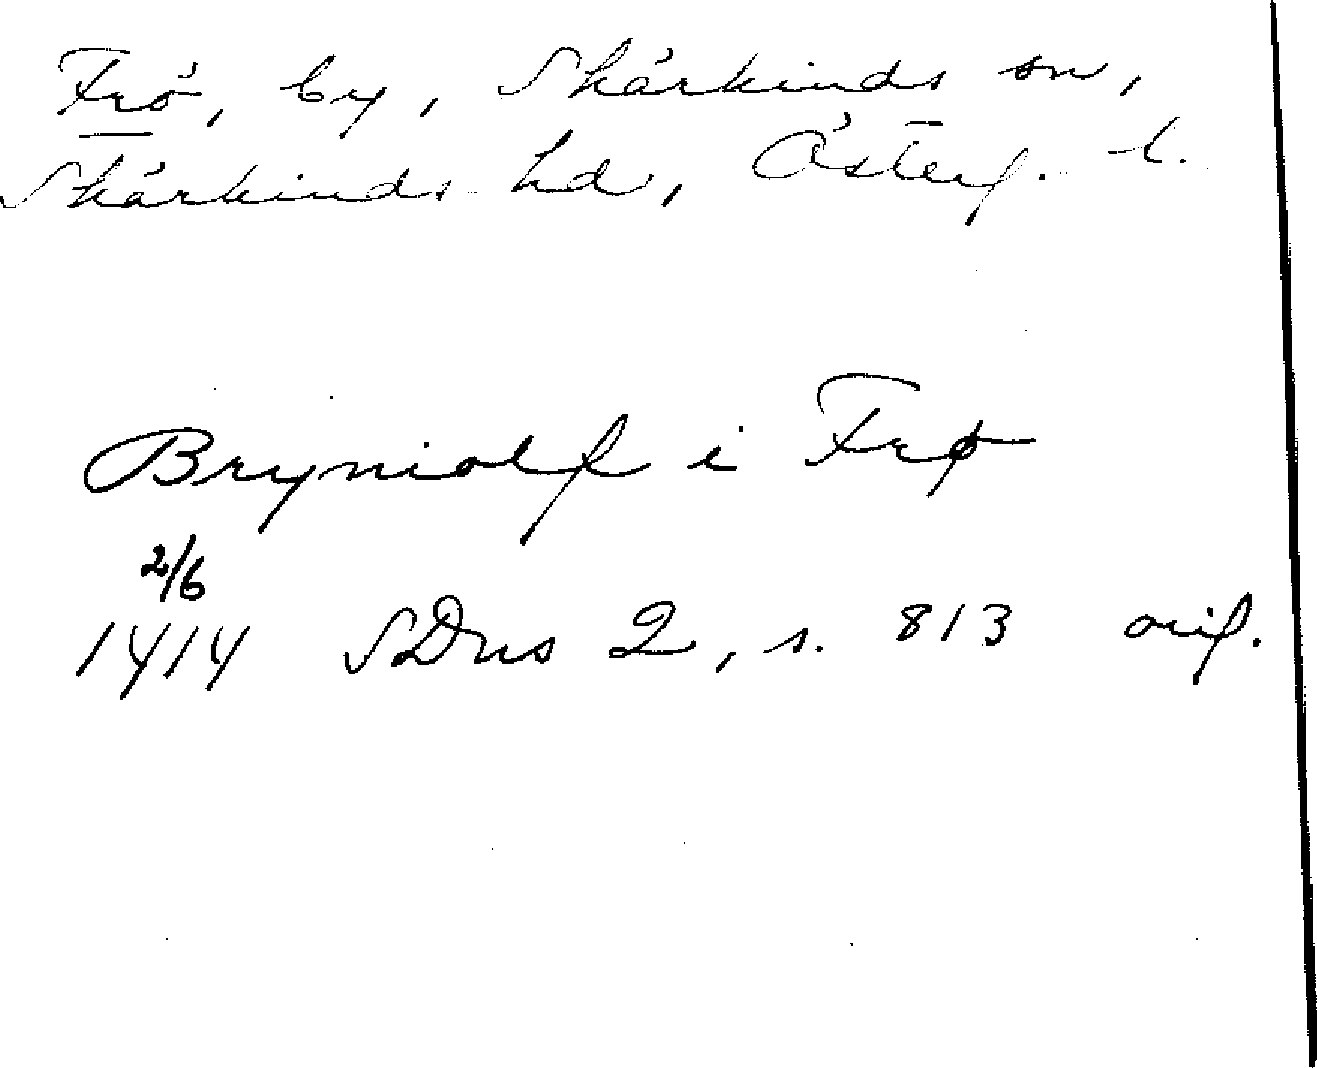 Frö, by, Skärkinds sn,
Skärkinds hd, Österg. l.
Bryniolf i Frø
2/6
1414 SDns 2, s. 813 orig.